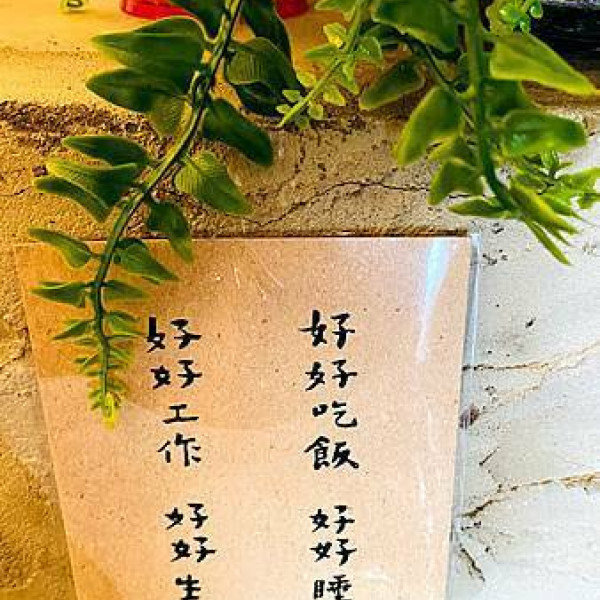 好好吃飯 好好睡
好好工作 好好生